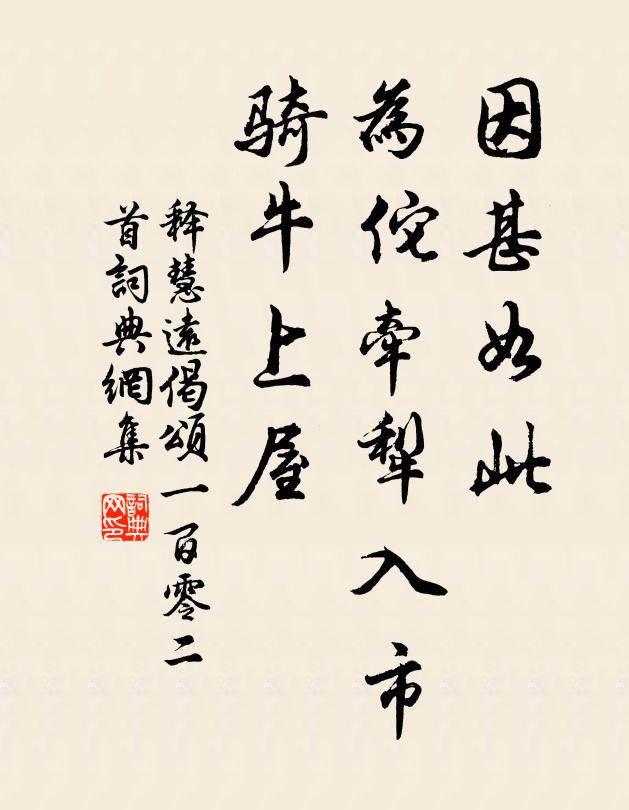 因甚如此
為佗牽犁入市
骑牛上屋
释慧遠偈頌一百零二
首詞典網集
詞典網印